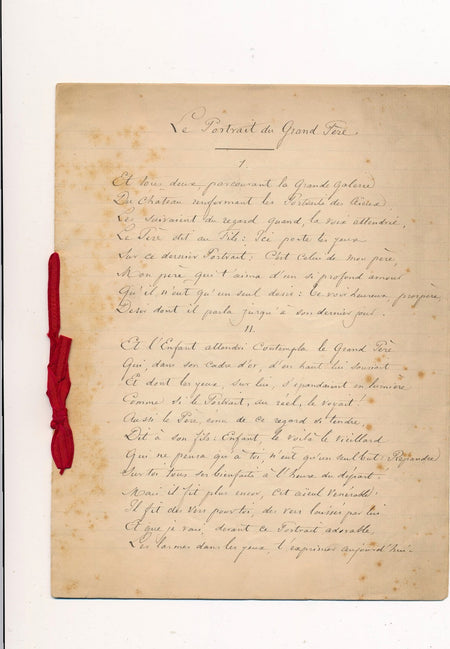 Le Portrait du Grand Père
1.
Et tous deux parcourant la Grande Galerie
Du Chateau renfermant les Portraits des Aïeux
Les suivaient du regard quand, la voix attendrie,
Le Père dit au Fils: Ici porte tes yeux
Sur ce dernier Portrait: C'est celui de mon père,
Mon père qui t'aima d'un si profond amour
Qu'il n'eut qu'un seul désir: te voir heureux, prospère,
Désir dont il parla jusqu'à son dernier jour.
11.
Et l'Enfant attendri Contempla le Grand Père
Qui, dans son cadre d'or, d'en haut lui souriait
Et dont les yeux, sur lui, s'épandaient en lumière
Comme si le Portrait, au réel, le voyait!
Aussi le Père, ému de ce regard si tendre,
Dit à son fils: Enfant, le voilà le vieillard
Qui ne pensa qu'à toi, n'eut qu'un seul but: Répandre
Sur toi tous ses bienfaits à l'heure du départ.
Mais il fit plus encor, cet aïeul vénérable:
Il fit des vers pour toi, des vers lui
Et que je vais, devant ce Portrait adorable,
Les larmes dans les yeux, t'exprimer aujourd'hui.